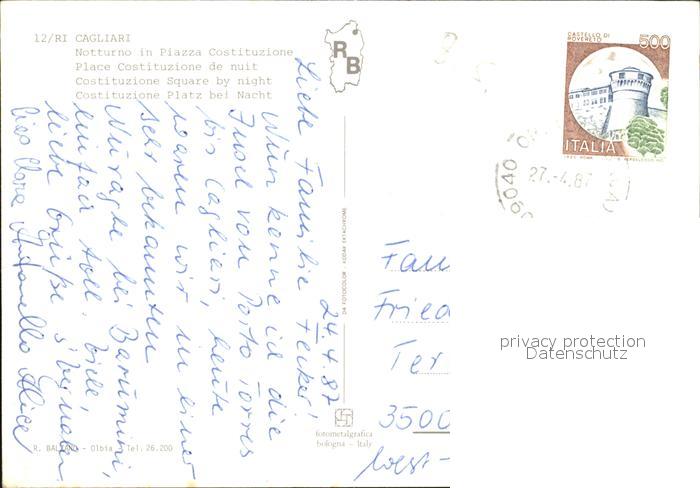 12/RI CAGLIARI
Notturno in Piazza Costituzione
Place Costituzione de nuit
Costituzione Square by night
Costituzione Platz bei Nacht
R B
CASTELLO DI
ROVERETO
500
ITALIA
27.-4.87
24.4.87
Liebe Familie Fecker!
Nun kenne ich die
Insel von Porto Torres
bis Cagliari, heute
waren wir in einer
sehr bekannten
Nuraghe bei Barumini,
einfach toll. Viele,
liebe Grüße s'
Ciao Clara Antonello Alice
DA FOTOCOLOR KODAK EKTACHROME
Fam
Fried
Ter
3500
West-
privacy protection
Datenschutz
fotometalgrafica
bologna - Italy
R. BALZANO - Olbia - Tel. 26.200